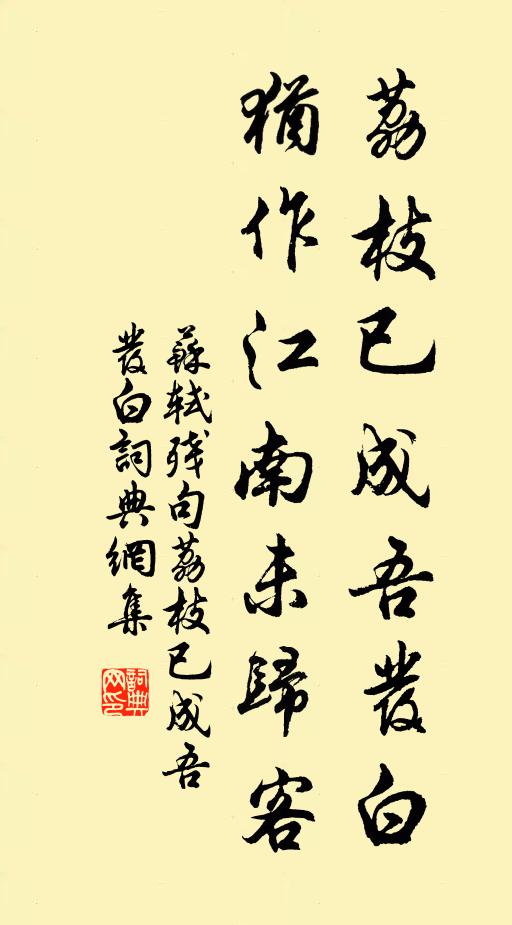 荔枝已成吾發白
猶作江南未歸客
蘇軾殘句荔枝已成吾
發白詞典網集
詞典网印